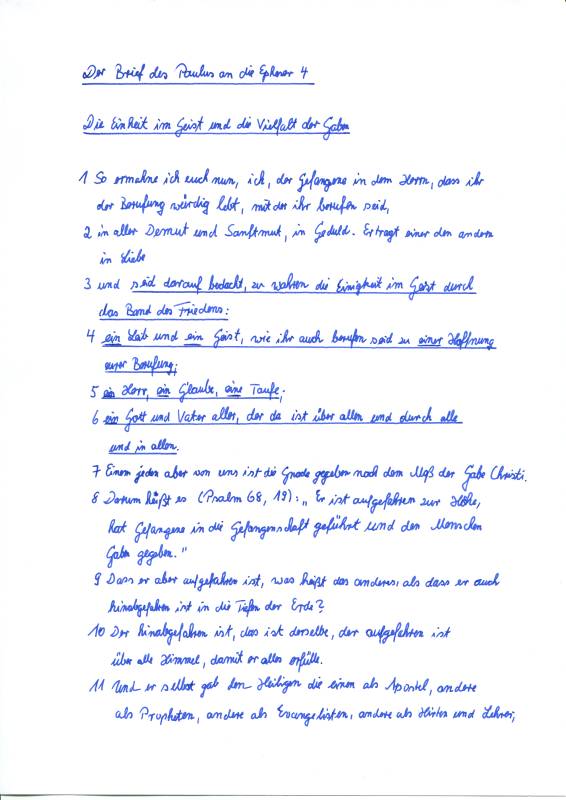 Der Brief des Paulus an die Epheser 4
Die Einheit im Geist und die Vielfalt der Gaben
1 So ermahne ich euch nun, ich, der Gefangene in dem Herrn, dass ihr
der Berufung würdig lebt, mit der ihr berufen seid,
2 in aller Demut und Sanftmut, in Geduld. Ertragt einer den andern
in Liebe
3 und seid darauf bedacht, zu wahren die Einigkeit im Geist durch
das Band des Friedens:
4 ein Leib und ein Geist, wie ihr auch berufen seid zu einer Hoffnung
eurer Berufung;
5 ein Herr, ein Glaube, eine Taufe;
6 ein Gott und Vater aller, der da ist über allen und durch alle
und in allen.
7 Einem jeden aber von uns ist die Gnade gegeben nach dem Maß der Gabe Christi.
8 Darum heißt es (Psalm 68, 19): „Er ist aufgefahren zur Höhe,
hat Gefangene in die Gefangenschaft geführt und den Menschen
Gaben gegeben."
9 Dass er aber aufgefahren ist, was heißt das anderes als dass er auch
hinabgefahren ist in die Tiefen der Erde?
10 Der hinabgefahren ist, das ist derselbe, der aufgefahren ist
über alle Himmel, damit er alles erfülle.
11 Und er selbst gab den Heiligen die einen als Apostel, andere
als Propheten, andere als Evangelisten, andere als Hirten und Lehrer,